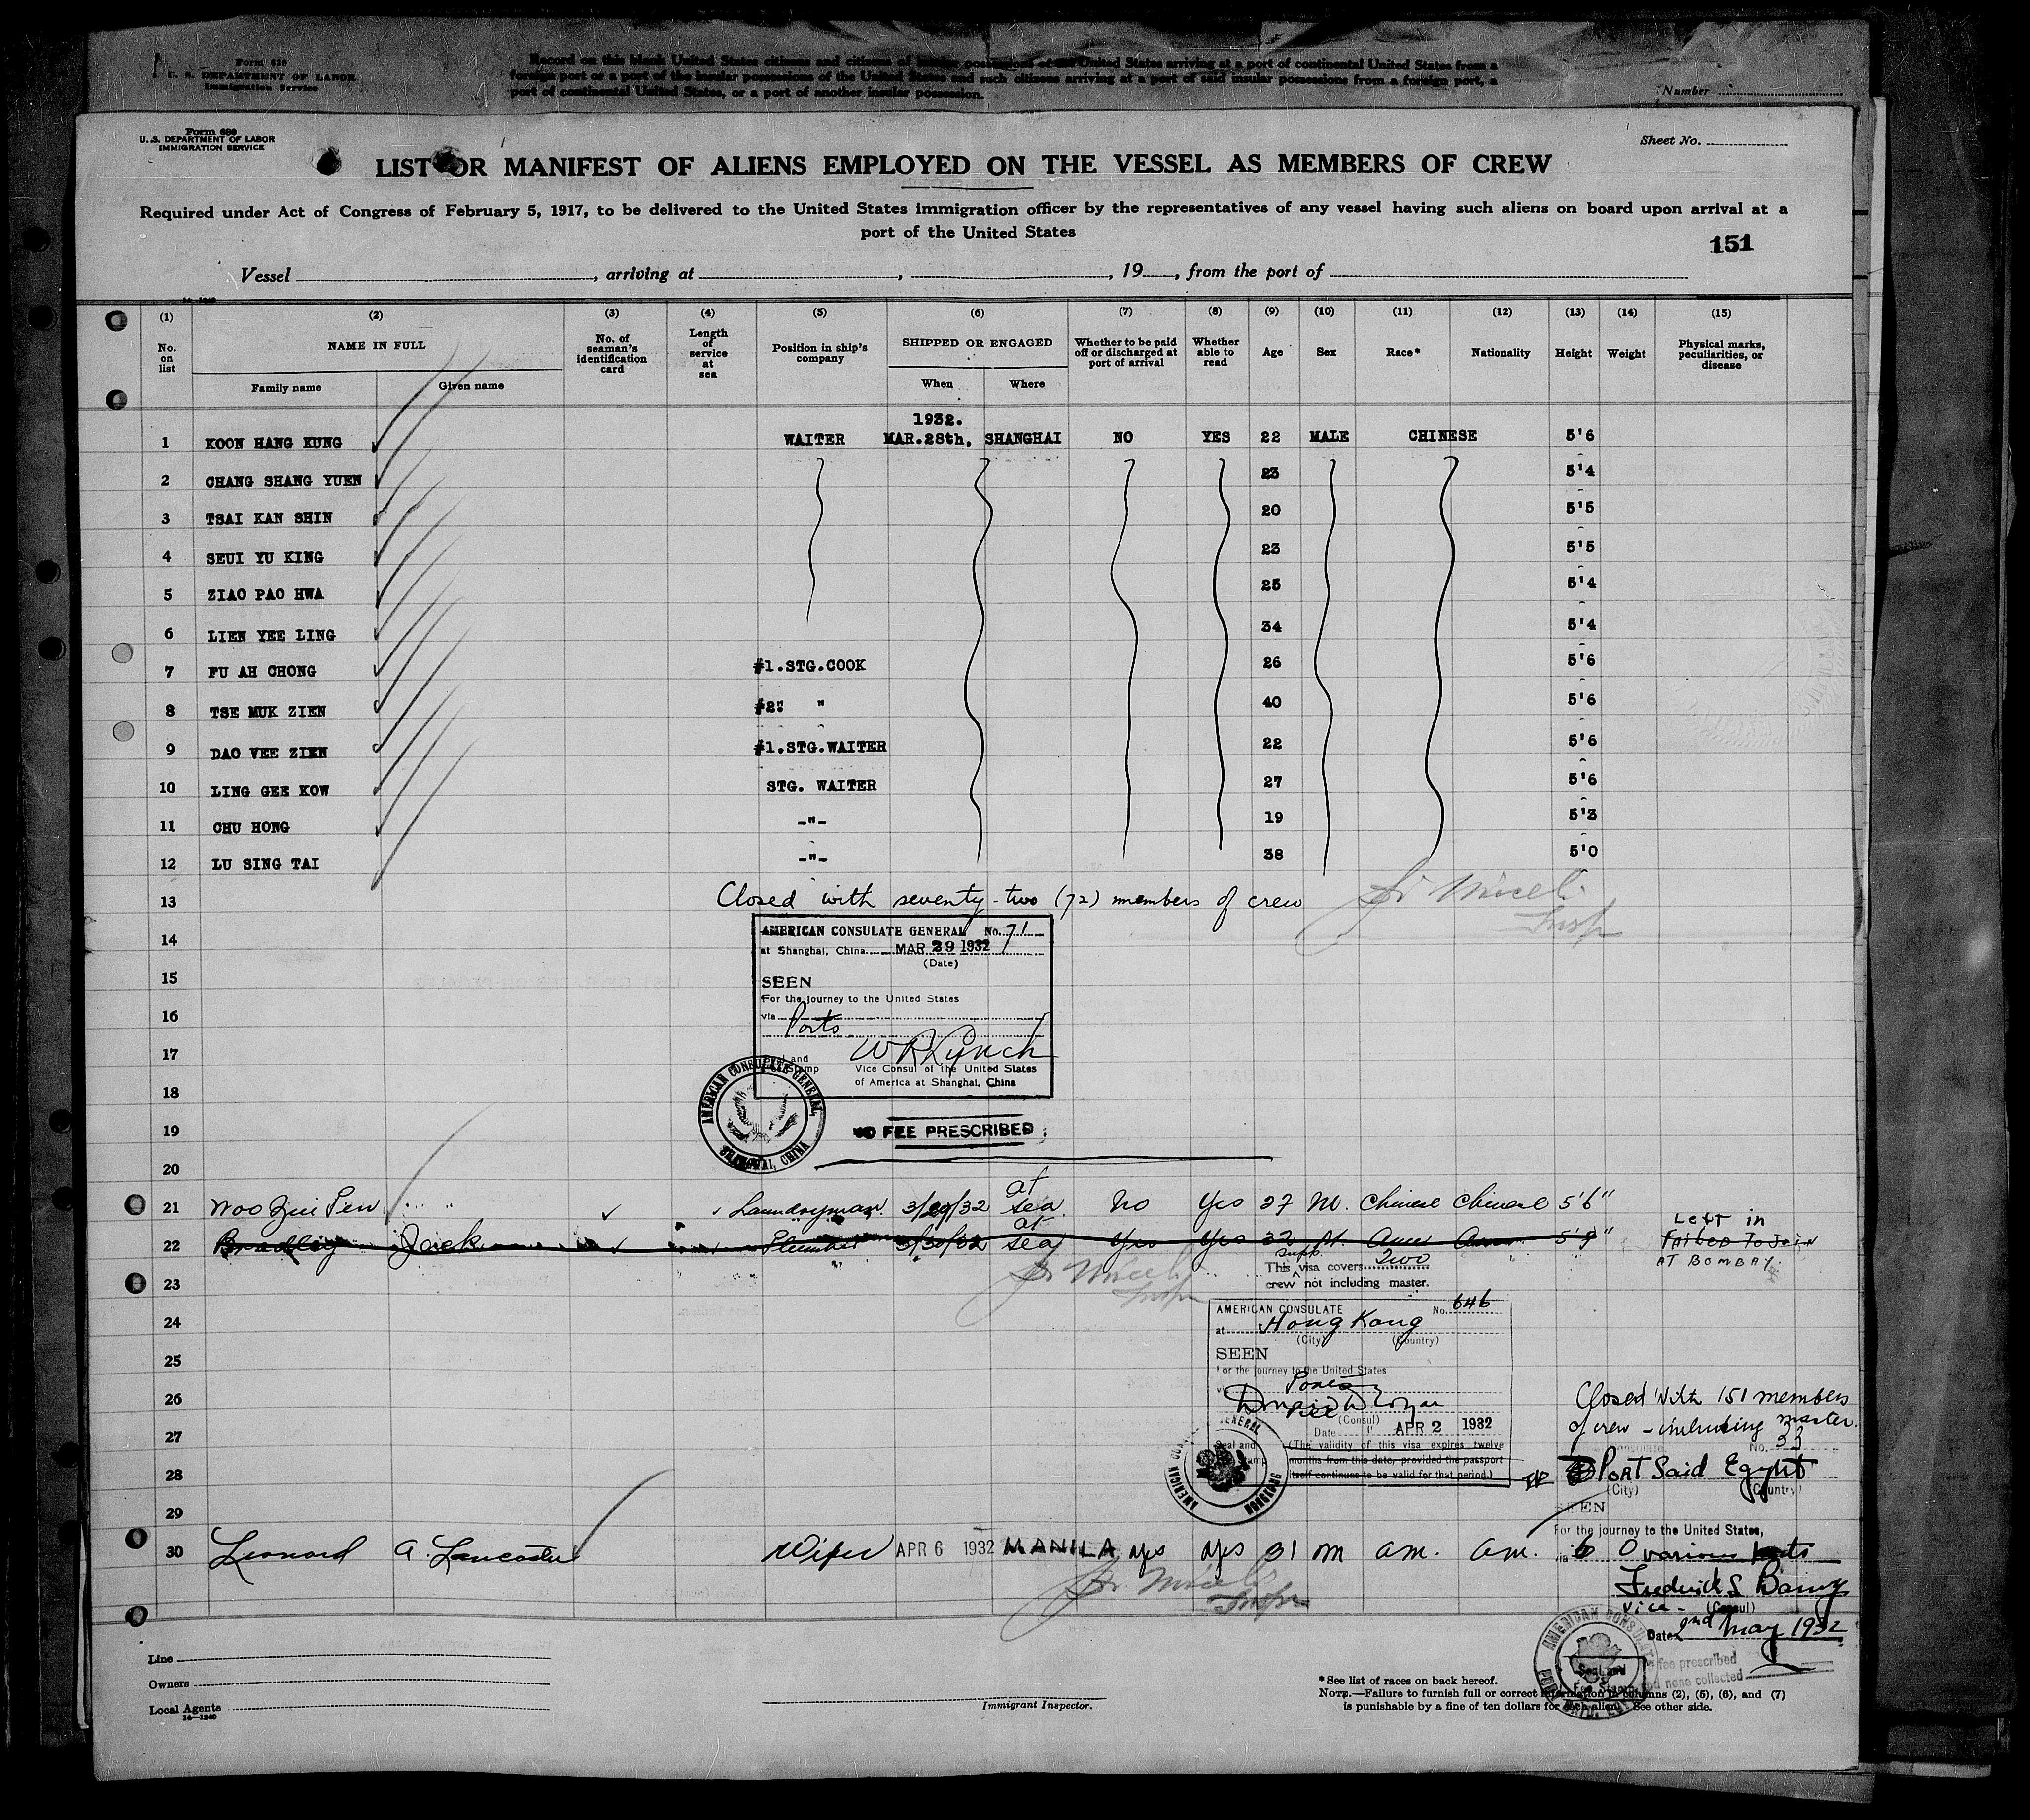 Form 630
U. S. DEPARTMENT OF LABOR
Immigration Service
Record on this blank United States citizens and citizens of insular possessions of the United States arriving at a port of continental United States from a
foreign port or a port of the insular possessions of the United States and such citizens arriving at a port of said insular possessions from a foreign port, a
port of continental United States, or a port of another insular possession.
Number
Form 680
U. S. DEPARTMENT OF LABOR
IMMIGRATION SERVICE
Sheet No.
LIST OR MANIFEST OF ALIENS EMPLOYED ON THE VESSEL AS MEMBERS OF CREW
Required under Act of Congress of February 5, 1917, to be delivered to the United States immigration officer by the representatives of any vessel having such aliens on board upon arrival at a
port of the United States
151
Vessel , arriving at , , 19 , from the port of
14—1240
(1) (2) (3) (4) (5) (6) (7) (8) (9) (10) (11) (12) (13) (14) (15)
No. on list NAME IN FULL No. of seaman's identification card Length of service at sea Position in ship's company SHIPPED OR ENGAGED Whether to be paid off or discharged at port of arrival Whether able to read Age Sex Race* Nationality Height Weight Physical marks, peculiarities, or disease
Family name Given name When Where
1932.
1 KOON HANG KUNG WAITER MAR.28th, SHANGHAI NO YES 22 MALE CHINESE 5'6
2 CHANG SHANG YUEN 23 5'4
3 TSAI KAN SHIN 20 5'5
4 SEUI YU KING 23 5'5
5 ZIAO PAO HWA 25 5'4
6 LIEN YEE LING 34 5'4
7 FU AH CHONG #1.STG.COOK 26 5'6
8 TSE MUK ZIEN #2" " 40 5'6
9 DAO VEE ZIEN #1.STG.WAITER 22 5'6
10 LING GEE KOW STG. WAITER 27 5'6
11 CHU HONG -"- 19 5'3
12 LU SING TAI -"- 38 5'0
13 Closed with seventy-two (72) members of crew
Insp
14 AMERICAN CONSULATE GENERAL No. 71
at Shanghai, China MAR 29 1932
(Date)
15 SEEN
For the journey to the United States
16 via Ports
17 W R Lynch
Seal and
Fee Stamp Vice Consul of the United States
of America at Shanghai, China
18
AMERICAN CONSULATE GENERAL, SHANGHAI, CHINA
19 NO FEE PRESCRIBED.
20
21 Woo Zui Pen Laundryman 3/29/32 at sea No Yes 27 M. Chinese Chinese 5'6"
22 Bradley Jack Plumber 3/30/32 at sea Yes Yes 32 M Am Am 5'9" Left in
Failed To Join
AT BOMBAY
This supp. visa covers Two
23 crew not including master.
Insp
AMERICAN CONSULATE No. 646
24 at Hong Kong
(City) (Country)
25 SEEN
For the journey to the United States
26 via Ports
(Consul)
27 Date APR 2 1932
Seal and Stamp
(The validity of this visa expires twelve
28 months from this date, provided the passport
itself continues to be valid for that period.)
AMERICAN CONSULATE GENERAL HONGKONG
29
Closed with 151 members
of crew - including master.
No. 33
Port Said Egypt
(City) (Country)
SEEN
For the journey to the United States,
via various ports
30 Leonard A. Lancaster Wiper APR 6 1932 MANILA yes yes 31 m am. am.
Insp
Vice- (Consul)
Date 2nd May 1932
No fee prescribed
and none collected
Seal and
Fee Stamp
Line
Owners
Local Agents
14—1240
Immigrant Inspector.
*See list of races on back hereof.
NOTE.—Failure to furnish full or correct information in columns (2), (5), (6), and (7)
is punishable by a fine of ten dollars for each alien. See other side.